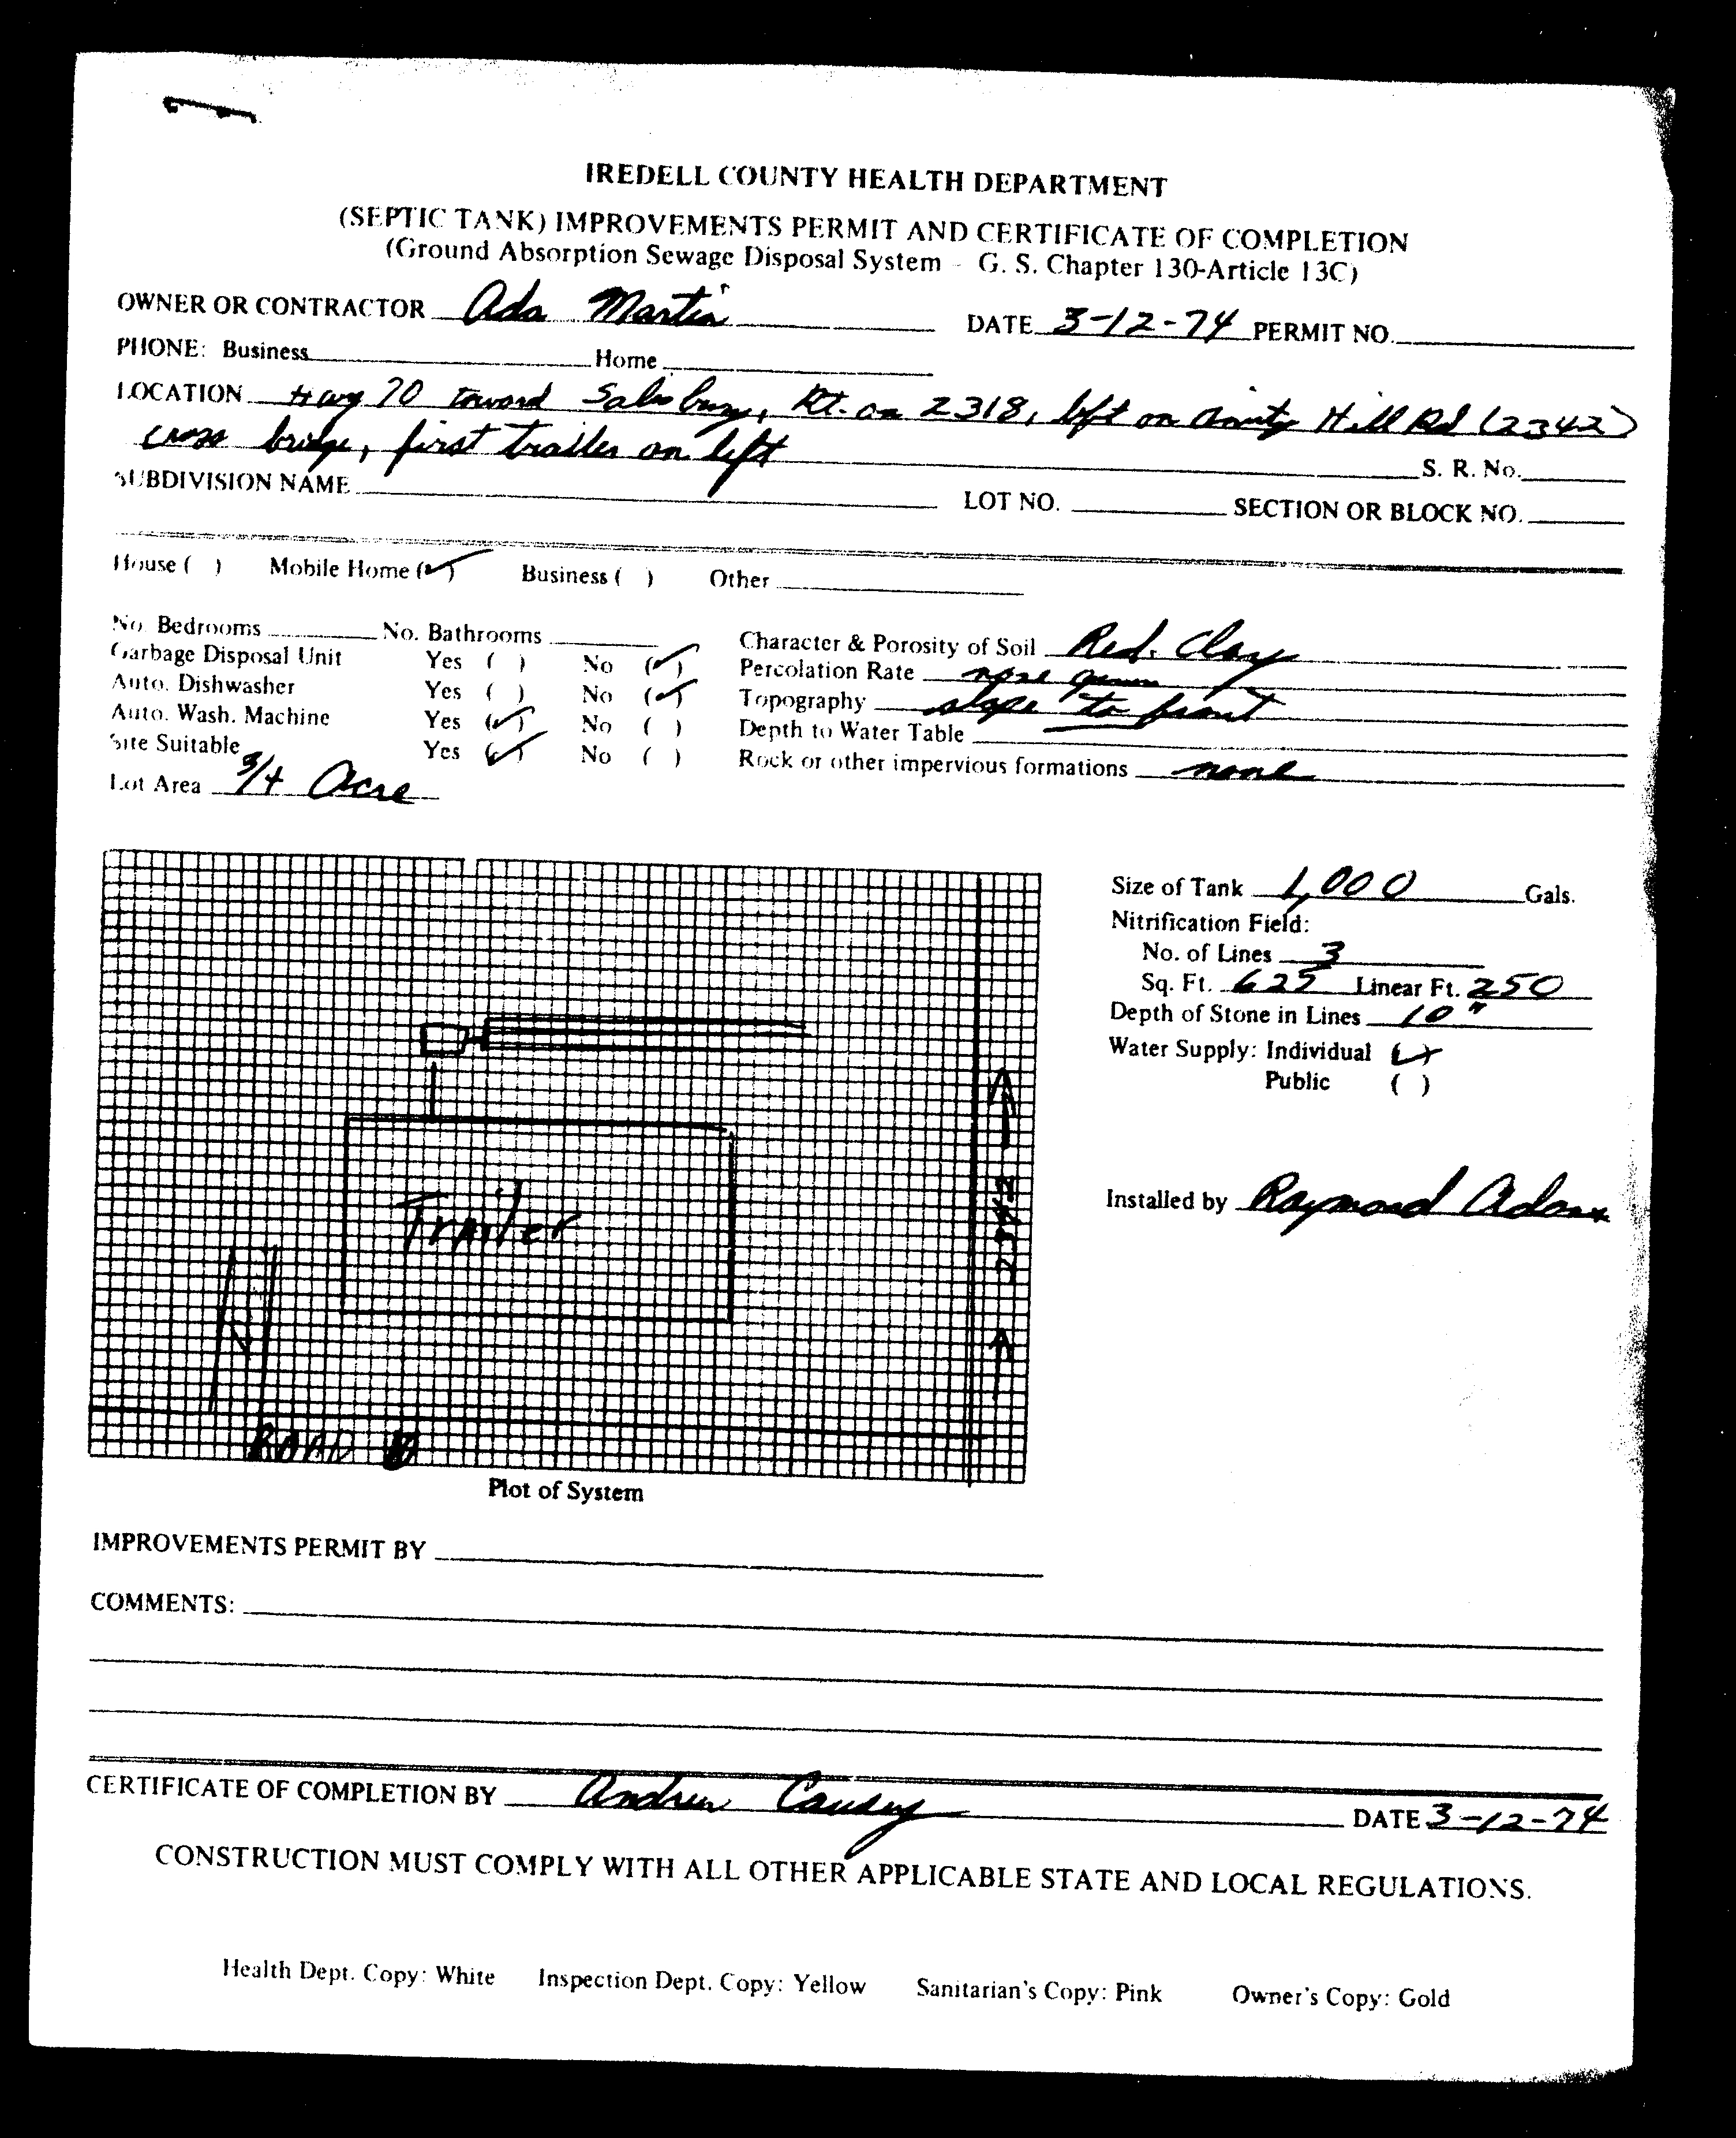 IREDELL COUNTY HEALTH DEPARTMENT
(SEPTIC TANK) IMPROVEMENTS PERMIT AND CERTIFICATE OF COMPLETION
(Ground Absorption Sewage Disposal System - G. S. Chapter 130-Article 13C)
OWNER OR CONTRACTOR Ada Martin DATE 3-12-74 PERMIT NO.
PHONE: Business Home
LOCATION Hwy 70 toward Salisbury, Rt. on 2318, left on Amity Hill Rd (2342)
cross bridge, first trailer on left S. R. No.
SUBDIVISION NAME LOT NO. SECTION OR BLOCK NO.
House ( ) Mobile Home (✓) Business ( ) Other
No. Bedrooms No. Bathrooms Character & Porosity of Soil Red. Clay
Garbage Disposal Unit Yes ( ) No (✓) Percolation Rate none
Auto. Dishwasher Yes ( ) No (✓) Topography slope to front
Auto. Wash. Machine Yes (✓) No ( ) Depth to Water Table
Site Suitable Yes (✓) No ( ) Rock or other impervious formations none
Lot Area 3/4 Acre
Size of Tank 1,000 Gals.
Nitrification Field:
No. of Lines 3
Sq. Ft. 625 Linear Ft. 250
Depth of Stone in Lines 10"
Water Supply: Individual (✓)
Public ( )
Installed by Raymond Adams
Trailer
2342
ROAD
Plot of System
IMPROVEMENTS PERMIT BY
COMMENTS:
CERTIFICATE OF COMPLETION BY Andrew Causby DATE 3-12-74
CONSTRUCTION MUST COMPLY WITH ALL OTHER APPLICABLE STATE AND LOCAL REGULATIONS.
Health Dept. Copy: White Inspection Dept. Copy: Yellow Sanitarian's Copy: Pink Owner's Copy: Gold